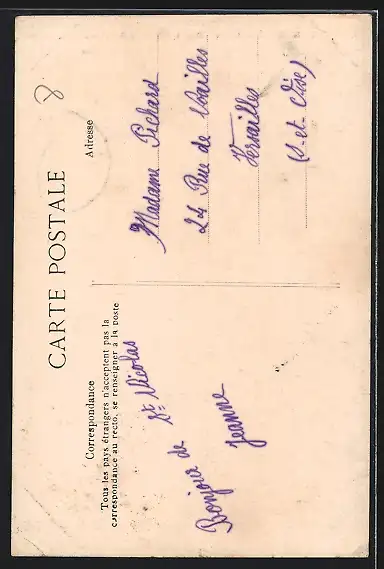 CARTE POSTALE
Correspondance
Tous les pays étrangers n'acceptent pas la
correspondance au recto, se renseigner à la poste
Bonjour de
St Nicolas
Jeanne
Adresse
8
Madame Pichard
24 Rue de
Versailles
(S-et-Oise)